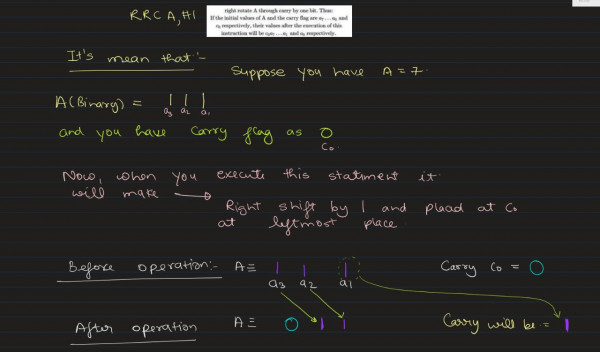 RRC A, #1
right rotate A through carry by one bit. Thus:
If the initial values of A and the carry flag are a₇...a₀ and
c₀ respectively, their values after the execution of this
instruction will be c₀a₇...a₁ and a₀ respectively.
It's mean that :-
Suppose you have A = 7.
A (Binary) = 1 1 1
a₃ a₂ a₁
and you have Carry flag as 0
C₀
Now, when you execute this statement it
will make →
Right shift by 1 and placed at C₀
at leftmost place
Before operation:- A ≡ 1 1 1 Carry C₀ = 0
a₃ a₂ a₁
After operation A ≡ 0 1 1 Carry will be = 1